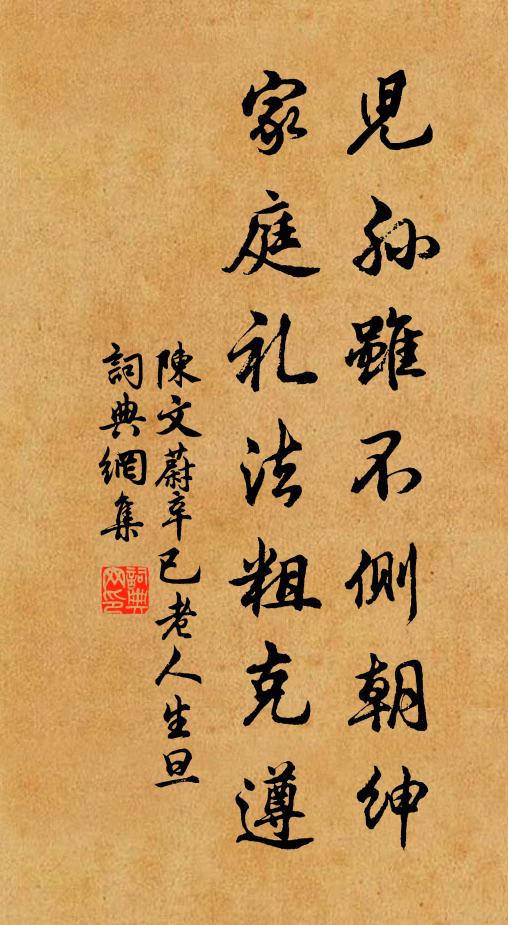 児孙雖不側朝紳
家庭礼法粗克遵
陳文蔚辛巳老人生旦
詞典網集
詞典网印